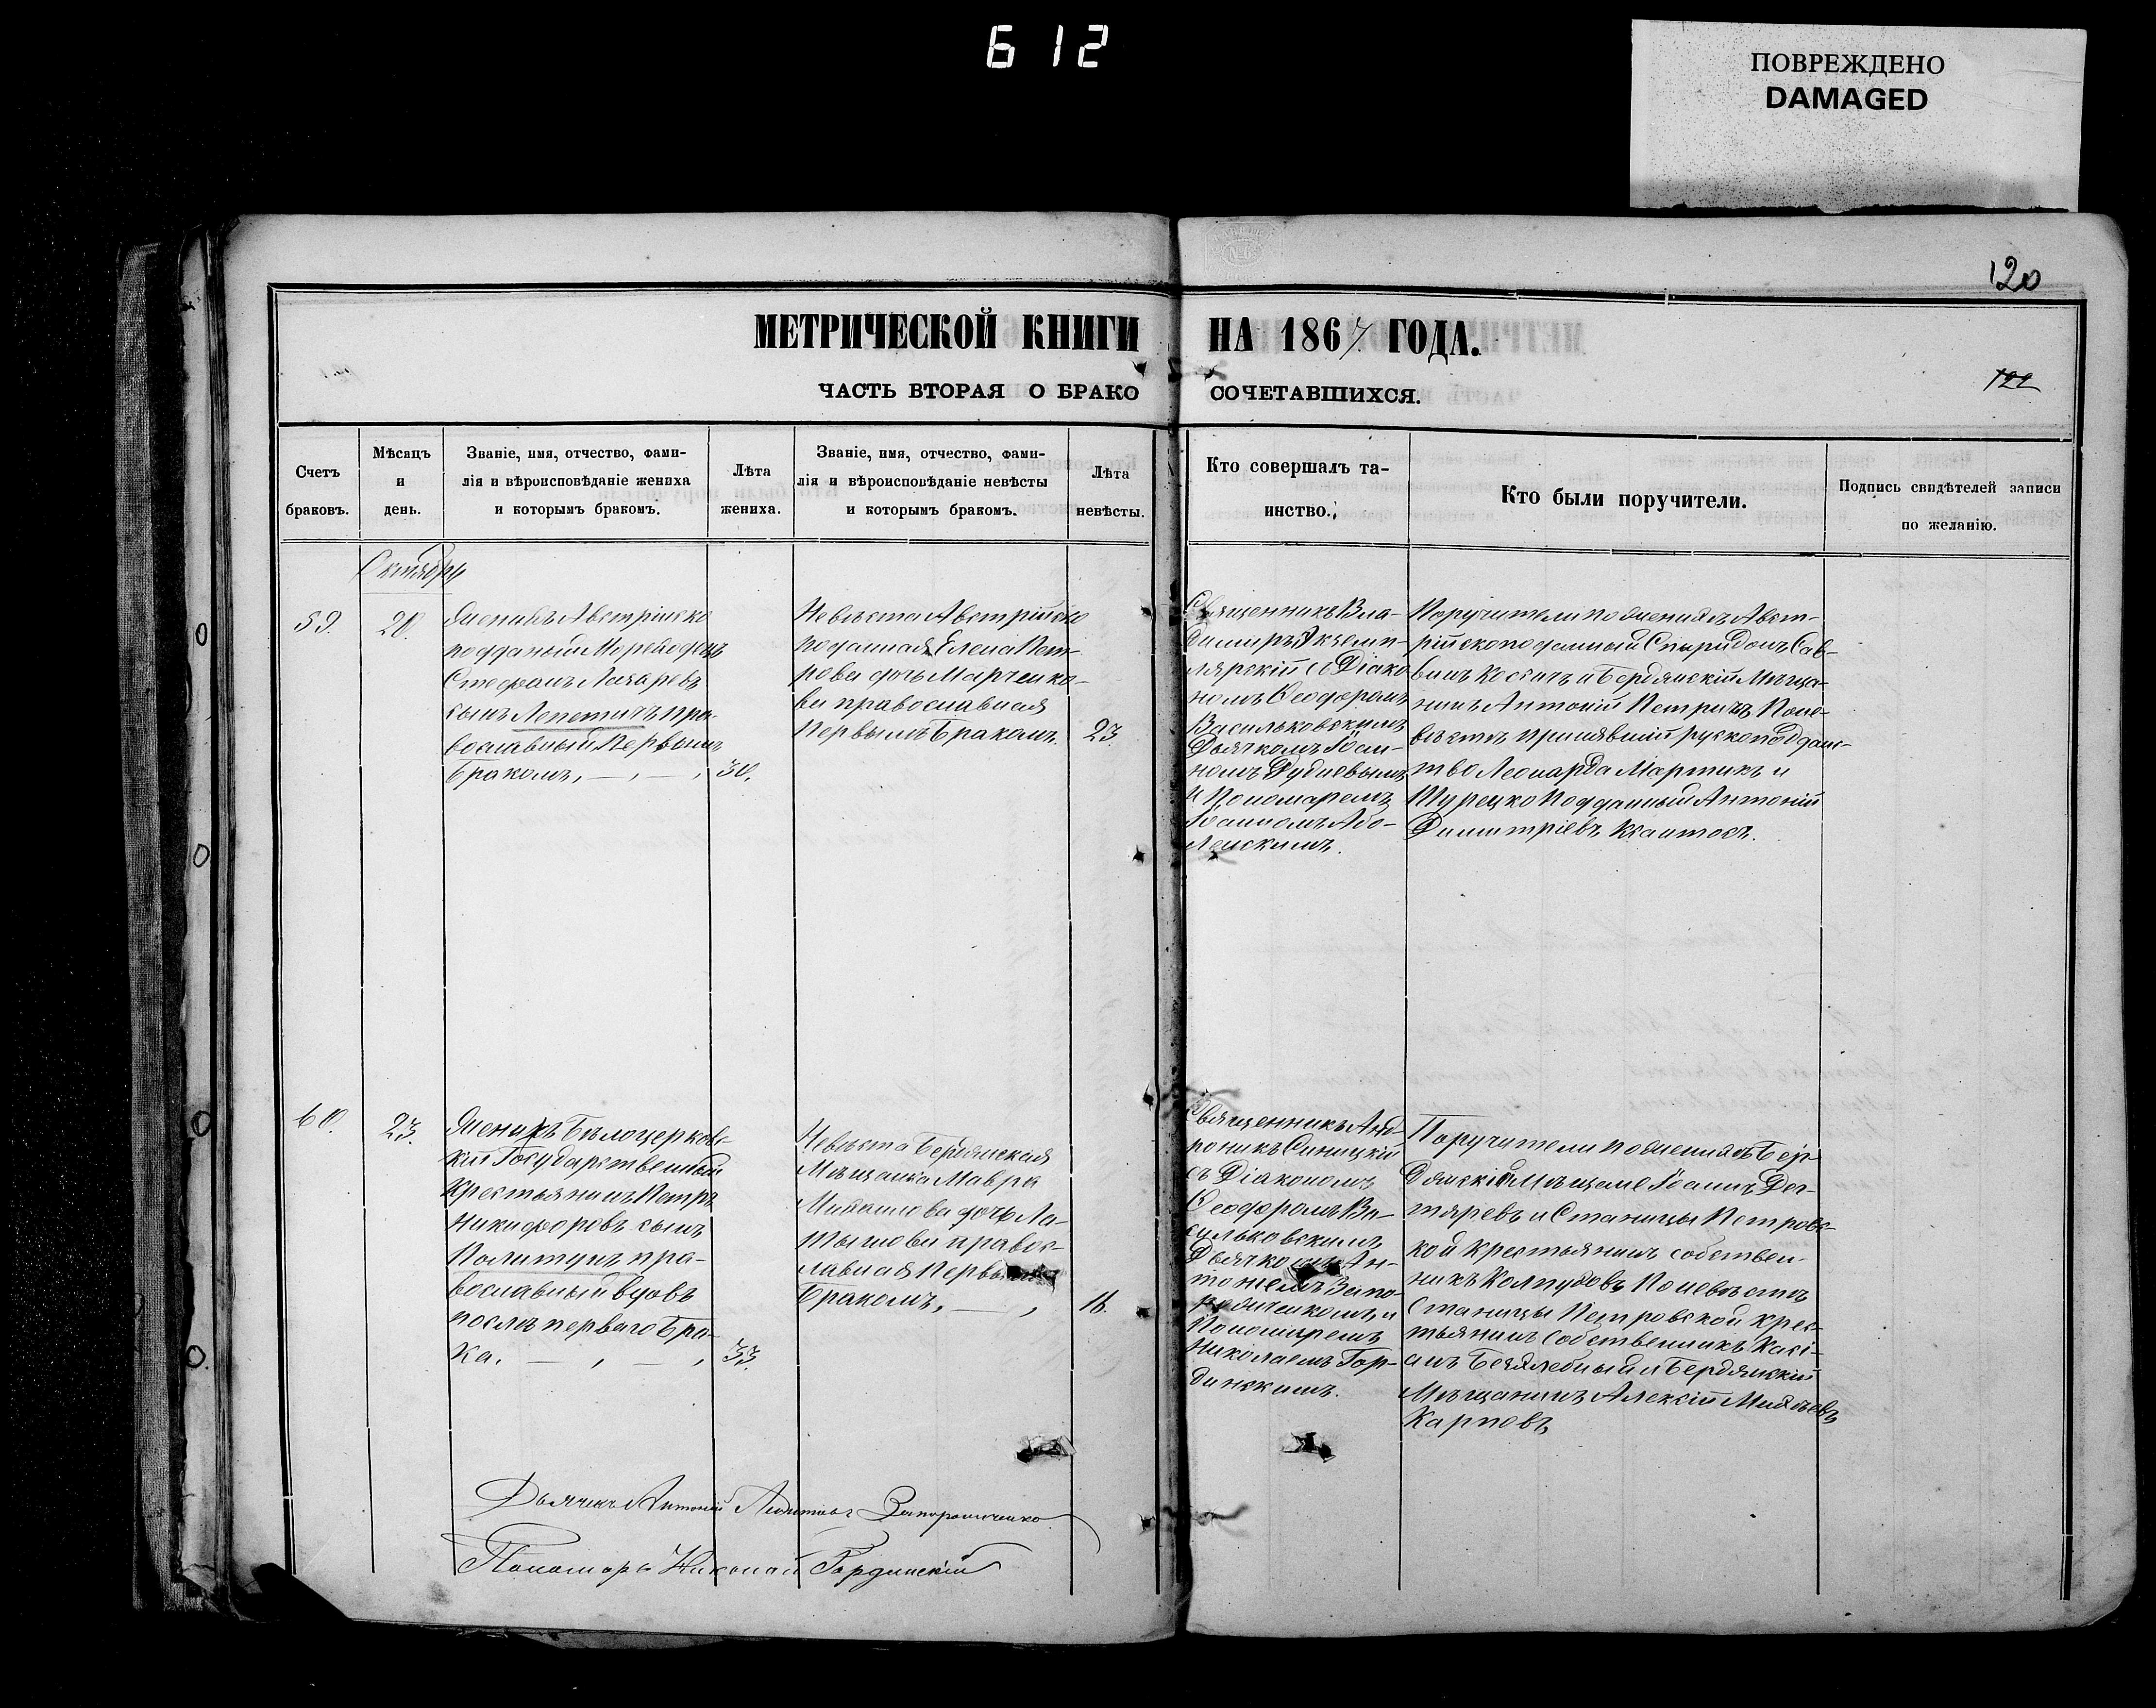 6 12
ПОВРЕЖДЕНО
DAMAGED
120
МЕТРИЧЕСКОЙ КНИГИ НА 1867 ГОДА.
ЧАСТЬ ВТОРАЯ О БРАКОСОЧЕТАВШИХСЯ.
122
Счетъ
браковъ.
Мѣсяцъ
и
день.
Званіе, имя, отчество, фами-
лія и вѣроисповѣданіе жениха
и которымъ бракомъ.
Лѣта
жениха.
Званіе, имя, отчество, фами-
лія и вѣроисповѣданіе невѣсты
и которымъ бракомъ.
Лѣта
невѣсты.
Кто совершалъ та-
инство.
Кто были поручители.
Подпись свидѣтелей записи
по желанію.
Октября
59.
20.
Женихъ Австрійско
подданый Мореходецъ
Стефанъ Лазаревъ
сынъ Лепетичъ пра-
вославный Первымъ
Бракомъ,
30.
Невѣста Австрійско
поданная Елена Пет-
рова дочь Марченко-
ва православная
Первымъ Бракомъ.
23.
Священникъ Вла-
димиръ Экземп-
лярскій съ Діако
номъ Феодоромъ
Васильковскимъ
Дьячкомъ Іоан-
номъ Дудневымъ
и Пономаремъ
Іоанномъ Або-
ленскимъ.
Поручители по женихѣ Авст-
рійскоподанный Спиридонъ Сав-
винъ Косичъ и Бердянскій Мѣща-
нинъ Антоній Петричъ По не-
вѣстѣ принявшій рускоподданс-
тво Леонарда Мартикъ и
Турецко Подданный Антоній
Димитріевъ Ксантосъ.
60.
23.
Женихъ Бѣлоцерковс-
кій Государственный
Крестьянинъ Петръ
Никифоровъ сынъ
Политунъ пра-
вославный вдовъ
послѣ перваго Бра-
ка.
33.
Невѣста Бердянская
Мѣщанка Мавра
Михайлова дочь Ла-
тышова правос-
лавная Первымъ
Бракомъ,
18.
Священникъ Анд-
роникъ Синицкій
съ Діакономъ
Феодоромъ Ва-
сильковскимъ
Дьячкомъ Ан-
тоніемъ Запо-
рожченкомъ и
Пономаремъ
Николаемъ Гор-
динскимъ.
Поручители по женихѣ Бер-
дянскій Мѣщане Іоаннъ Дег-
тяревъ и Станицы Петровс-
кой крестьянинъ собствен-
никъ Колпудовъ По невѣстѣ
Станицы Петровской крес-
тьянинъ собственникъ Касі-
анъ Безхлебный и Бердянскій
Мѣщанинъ Алексій
Карповъ
Дьячекъ Антоній Запорожченко
Пономарь Николай Гординскій